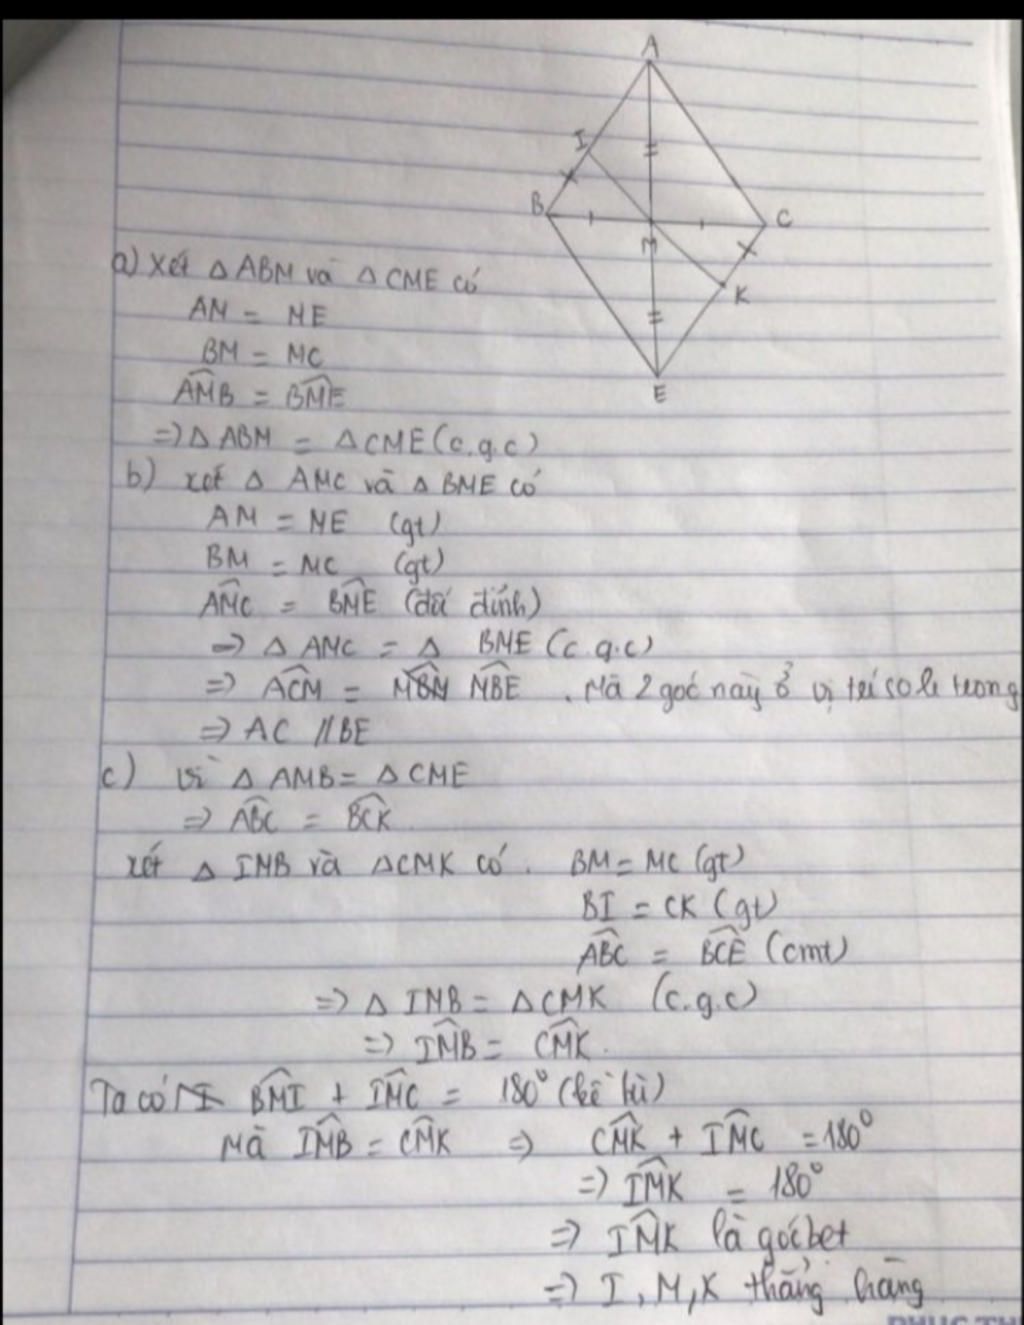 A
I
B
C
M
K
E
a) Xét △ ABM và △ CME có
AM = ME
BM = MC
AMB = BME
=> △ ABM = △ CME (c.g.c)
b) xét △ AMC và △ BME có
AM = ME (gt)
BM = MC (gt)
AMC = BME (đối đỉnh)
=> △ AMC = △ BME (c.g.c)
=> ACM = MBE . Mà 2 góc này ở vị trí so le trong
=> AC // BE
c) vì △ AMB = △ CME
=> ABC = BCK
xét △ IMB và △CMK có. BM = MC (gt)
BI = CK (gt)
ABC = BCE (cmt)
=> △ IMB = △CMK (c.g.c)
=> IMB = CMK.
Ta có BMI + IMC = 180° (kề bù)
Mà IMB = CMK => CMK + IMC = 180°
=> IMK = 180°
=> IMK là góc bẹt
=> I, M, K thẳng hàng